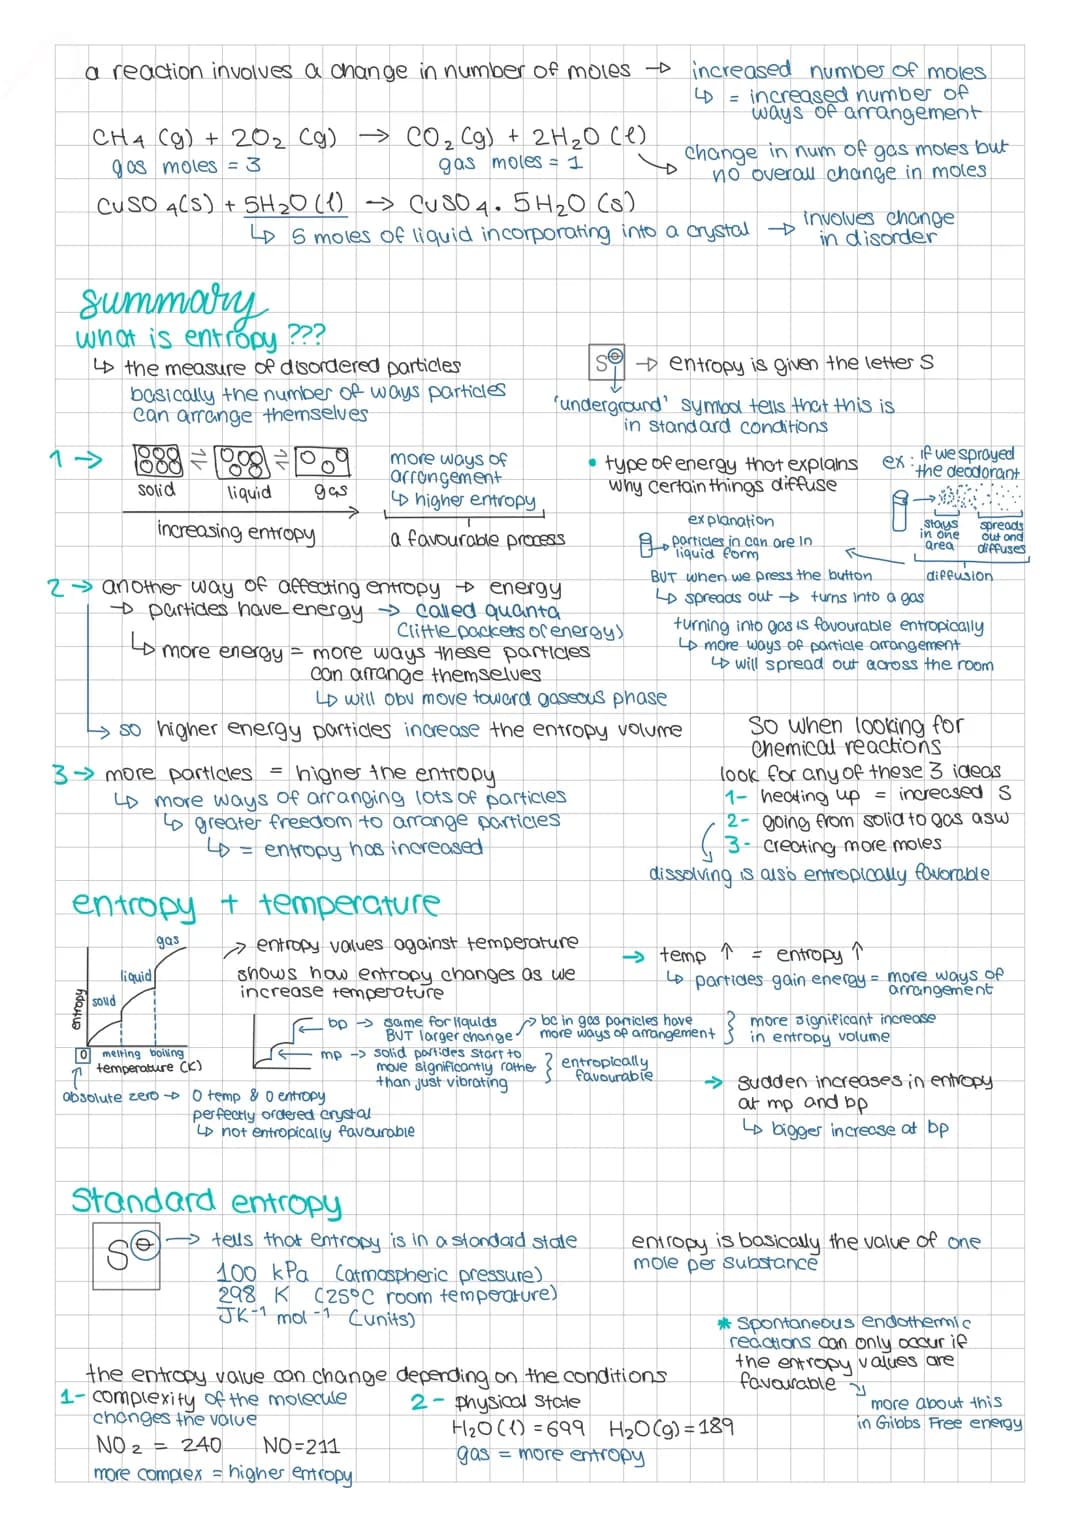 a reaction involves a change in number of moles → increased number of moles
↳ = increased number of
ways of arrangement
CH4 (g) + 2O2 (g) → CO2 (g) + 2H2O (l)
gas moles = 3
gas moles = 1
change in num of gas moles but
no overall change in moles
CuSO4(s) + 5H2O (l) → CuSO4. 5H2O (s)
↳ 5 moles of liquid incorporating into a crystal → involves change
in disorder
summary
what is entropy ???
↳ the measure of disordered particles
basically the number of ways particles
can arrange themselves
S⊖ → entropy is given the letter S
'underground' symbol tells that this is
in standard conditions
1 →
solid
liquid
gas
increasing entropy
more ways of
arrangement
↳ higher entropy
a favourable process
• type of energy that explains
why certain things diffuse
ex: if we sprayed
the deodorant
stays
in one
area
spreads
out and
diffuses
diffusion
explanation
particles in can are in
liquid form
BUT when we press the button
↳ spreads out → turns into a gas
turning into gas is favourable entropically
↳ more ways of particle arrangement
↳ will spread out across the room
2 → another way of affecting entropy → energy
→ particles have energy → called quanta
(little packets of energy)
↳ more energy = more ways these particles
can arrange themselves
↳ will obv move toward gaseous phase
↳ so higher energy particles increase the entropy volume
3 → more particles = higher the entropy
↳ more ways of arranging lots of particles
↳ greater freedom to arrange particles
↳ = entropy has increased
So when looking for
chemical reactions
look for any of these 3 ideas
1- heating up = increased S
2- going from solid to gas asw
3- creating more moles
dissolving is also entropically favorable
entropy + temperature
gas
liquid
solid
entropy
0
melting boiling
temperature (K)
absolute zero → 0 temp & 0 entropy
perfectly ordered crystal
↳ not entropically favourable
→ entropy values against temperature
shows how entropy changes as we
increase temperature
bp → same for liquids
BUT larger change
bc in gas particles have
more ways of arrangement
more significant increase
in entropy volume
mp → solid particles start to
move significantly rather
than just vibrating
entropically
favourable
→ temp ↑ = entropy ↑
↳ particles gain energy = more ways of
arrangement
→ sudden increases in entropy
at mp and bp
↳ bigger increase at bp
Standard entropy
S⊖ → tells that entropy is in a standard state
100 kPa (atmospheric pressure)
298 K (25°C room temperature)
JK-1 mol-1 (units)
entropy is basically the value of one
mole per substance
* Spontaneous endothermic
reactions can only occur if
the entropy values are
favourable
more about this
in Gibbs Free energy
the entropy value can change depending on the conditions
1- complexity of the molecule
changes the value
NO2 = 240 NO=211
more complex = higher entropy
2- physical state
H2O (l) = 699 H2O(g)=189
gas = more entropy